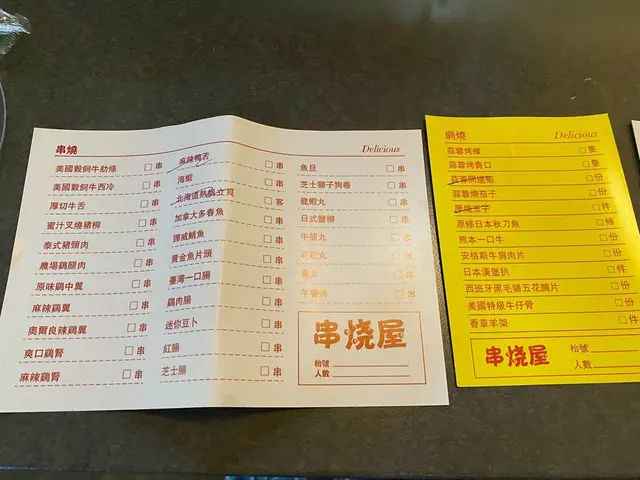 串燒
Delicious
美國穀飼牛肋條 □ 串
美國穀飼牛西冷 □ 串
厚切牛舌 □ 串
蜜汁叉燒豬柳 □ 串
泰式豬頸肉 □ 串
農場鷄腿肉 □ 串
原味鷄中翼 □ 串
麻辣鷄翼 □ 串
奧爾良辣鷄翼 □ 串
爽口鷄腎 □ 串
麻辣鷄腎 □ 串
麻辣鴨舌 □ 串
海蝦 □ 串
北海道 立貝 □ 客
加拿大多春魚 □ 串
挪威鯖魚 □ 串
黃金魚片頭 □ 串
臺灣一口腸 □ 串
鷄肉腸 □ 串
迷你豆卜 □ 串
紅腸 □ 串
芝士腸 □ 串
魚旦 □ 串
芝士獅子狗卷 □ 串
龍蝦丸 □ 串
日式蟹柳 □ 串
牛筋丸 □ 串
丸 □ 串
□ 串
□ 串
串烧屋
枱號
人數
網燒
Delicious
蒜蓉烤蠔 □ 隻
蒜蓉烤青口 □ 隻
蒜蓉開邊蝦 □ 份
蒜蓉燒茄子 □ 份
厚燒玉子 □ 件
原條日本秋刀魚 □ 條
熊本一口牛 □ 份
安格斯牛肩肉片 □ 份
日本漢堡扒 □ 件
西班牙黑毛猪五花腩片 □ 份
美國特級牛仔骨 □ 份
香草羊架 □ 件
串烧屋
枱號
人數